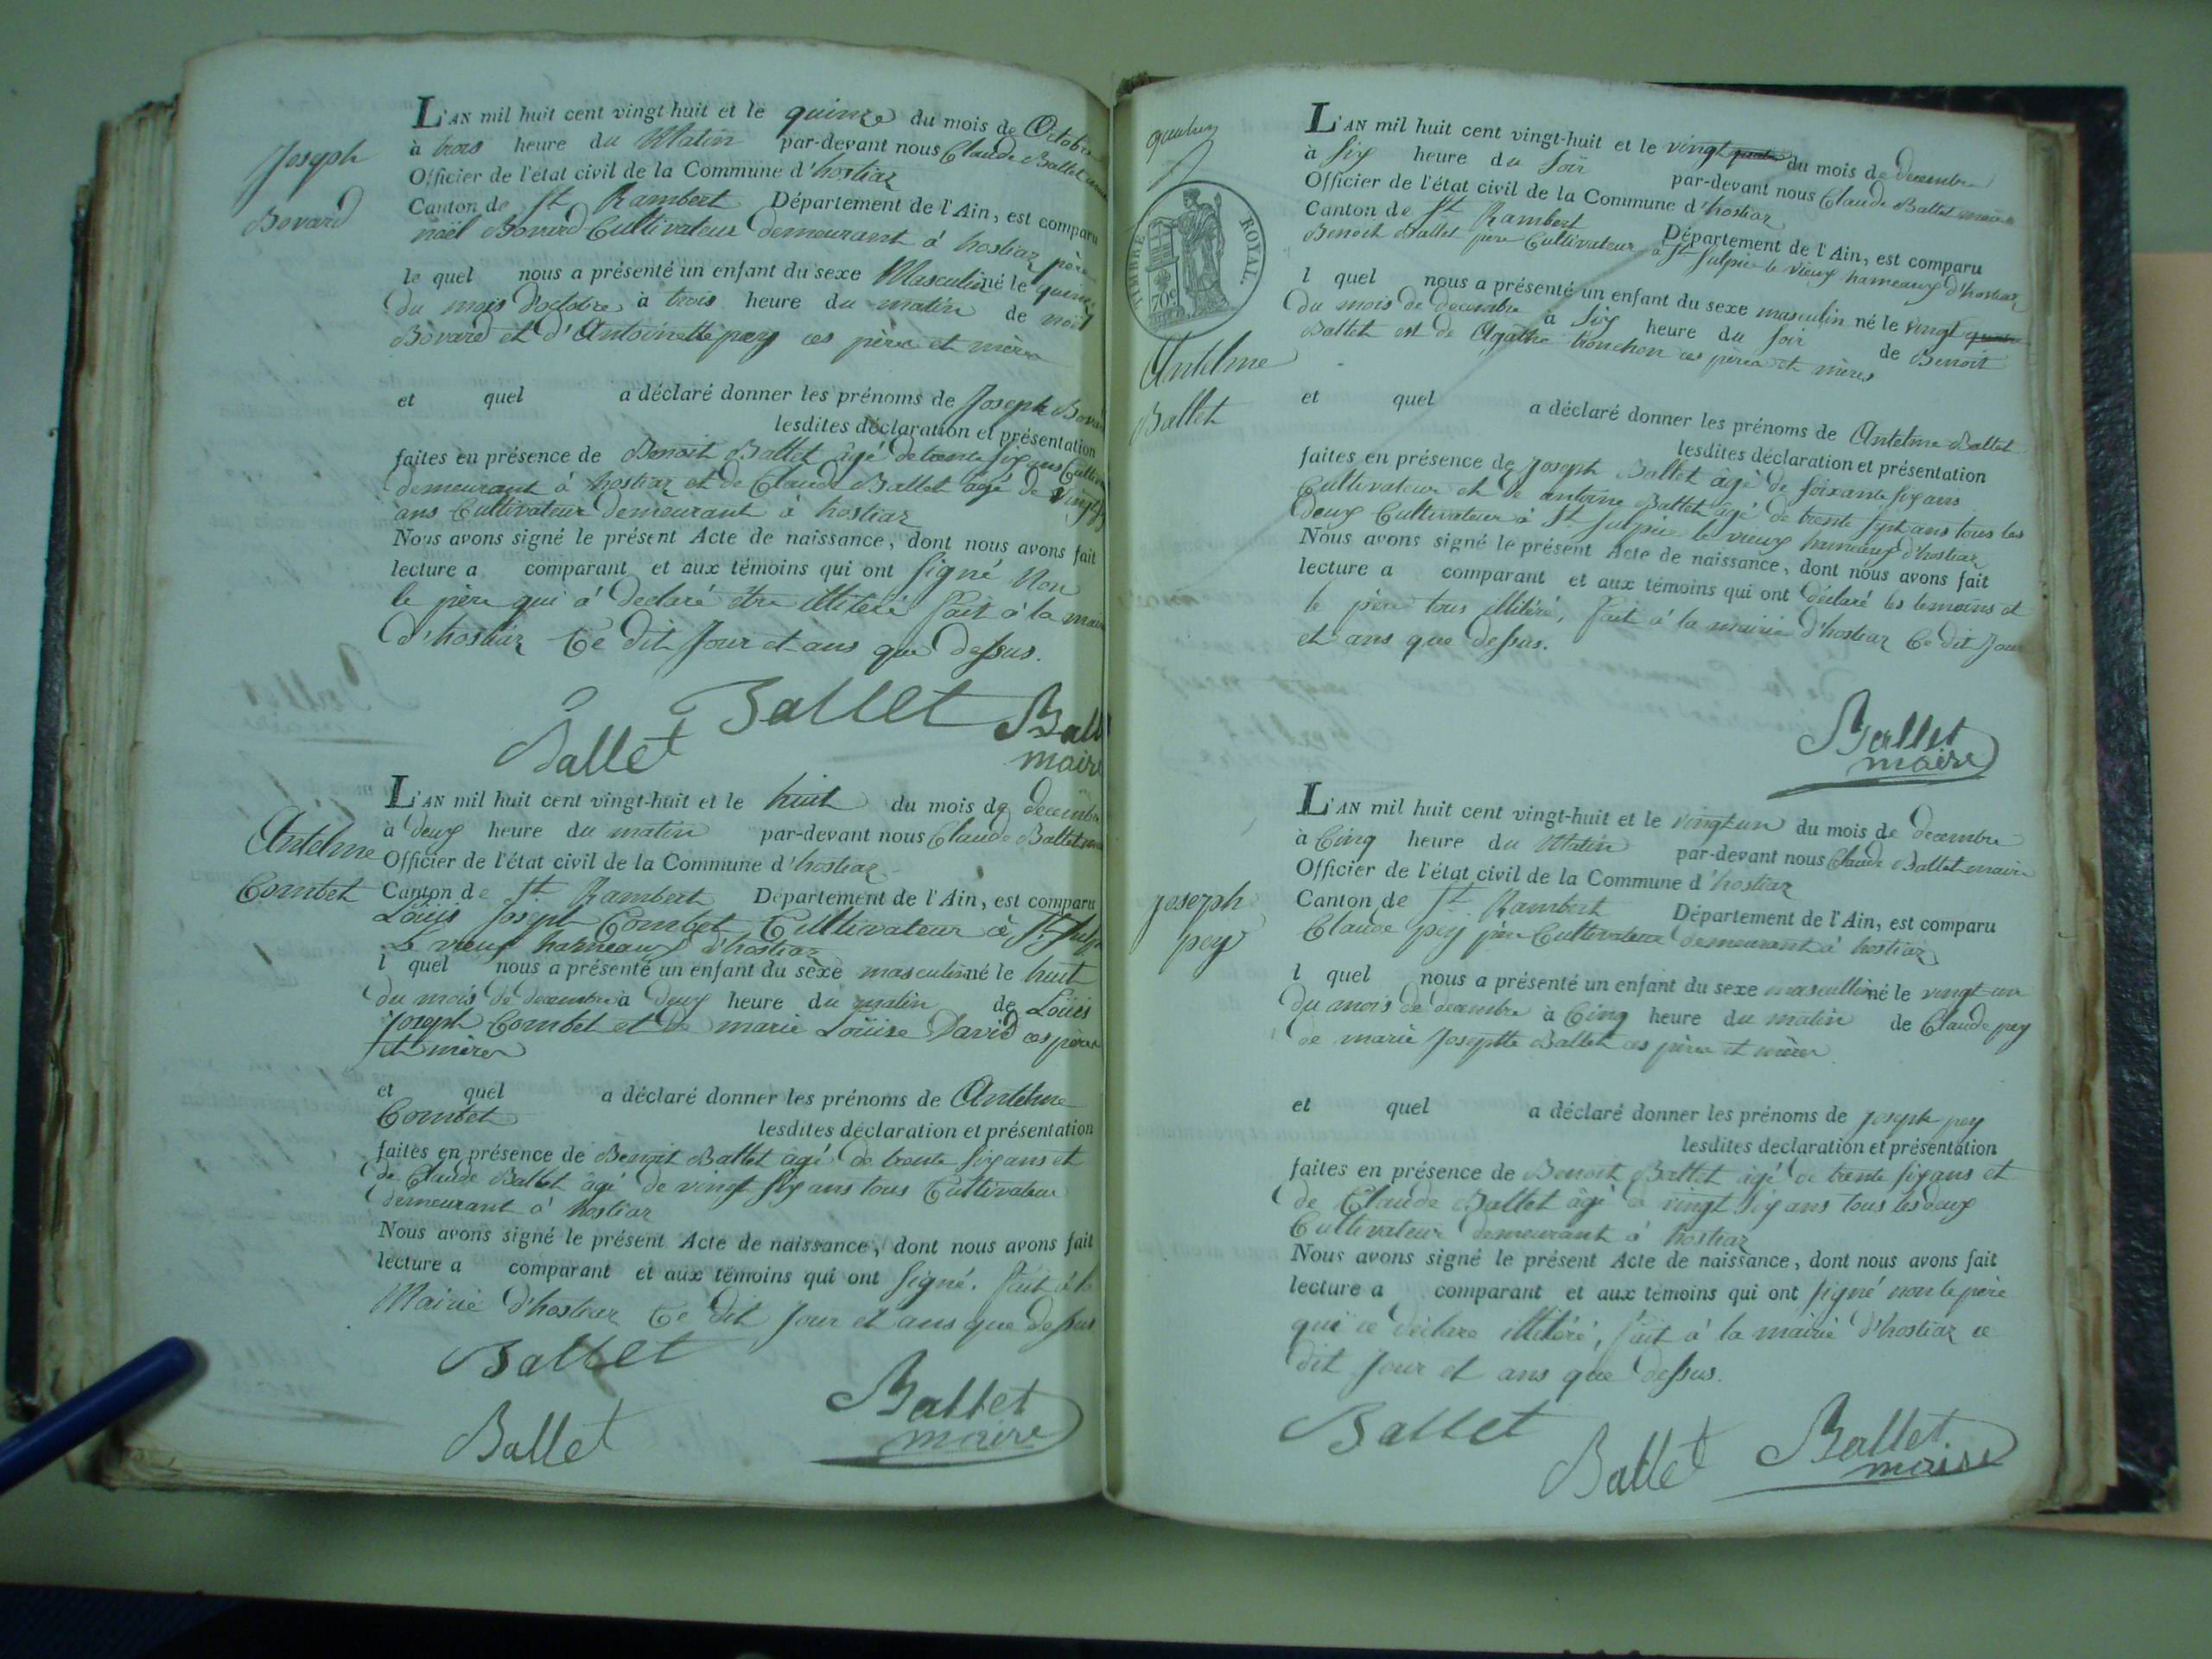 Joseph
Bovard
L'AN mil huit cent vingt-huit et le quinze du mois de Octobre
à trois heure du Matin par-devant nous Claude Ballet
Officier de l'état civil de la Commune d'hostiaz
Canton de St Rambert Département de l'Ain, est comparu
noël Bovard Cultivateur demeurant à hostiaz père
le quel nous a présenté un enfant du sexe Masculin né le quinze
du mois d'octobre à trois heure du matin de noël
Bovard et d'Antoinette pey ces père et mère
et quel a déclaré donner les prénoms de Joseph Bovard
lesdites déclaration et présentation
faites en présence de Benoit Ballet âgé de trente six ans
demeurant à hostiaz et de Claude Ballet agé de vingt six
ans Cultivateur demeurant à hostiaz
Nous avons signé le présent Acte de naissance, dont nous avons fait
lecture a comparant et aux témoins qui ont signé Non
le père qui a declaré etre illiteré fait à la
d'hostiaz Ce dit Jour et ans que dessus.
Ballet
Ballet
Ball
maire
Antelme
Combet
L'AN mil huit cent vingt-huit et le huit du mois de decembre
à deux heure du matin par-devant nous Claude Ballet
Officier de l'état civil de la Commune d'hostiaz
Canton de St Rambert Département de l'Ain, est comparu
Loüis Joseph Combet Cultivateur à St
Le vieux hameaux d'hostiaz
l quel nous a présenté un enfant du sexe masculin né le huit
du mois de decembre à deux heure du matin de Loüis
Joseph Combet et de marie Loüise David ces père
et mère
et quel a déclaré donner les prénoms de Antelme
Combet
lesdites déclaration et présentation
faites en présence de Benoit Ballet agé de trente six ans et
de Claude Ballet âgé de vingt six ans tous Cultivateur
demeurant à hostiaz
Nous avons signé le présent Acte de naissance, dont nous avons fait
lecture a comparant et aux témoins qui ont signé. fait à la
Mairie d'hostiaz Ce dit Jour et ans que dessus.
Ballet
Ballet
Ballet
maire
TIMBRE ROYAL.
70c
Antelme
Ballet
L'AN mil huit cent vingt-huit et le vingt du mois de decembre
à six heure du soir par-devant nous Claude Ballet maire
Officier de l'état civil de la Commune d'hostiaz
Canton de St Rambert Département de l'Ain, est comparu
Benoit Ballet père Cultivateur à St Sulpice le vieux hameaux d'hostiaz
l quel nous a présenté un enfant du sexe masculin né le vingt
du mois de decembre à six heure du soir de Benoit
Ballet et de Agathe tronchon ces père et mères
et quel a déclaré donner les prénoms de Antelme Ballet
lesdites déclaration et présentation
faites en présence de Joseph Ballet âgé de soixante six ans
Cultivateur et de antoine Ballet agé de trente sept ans tous les
deux Cultivateur à St Sulpice le vieux hameaux d'hostiaz
Nous avons signé le présent Acte de naissance, dont nous avons fait
lecture a comparant et aux témoins qui ont déclaré les temoins et
le père tous illitéré, fait à la mairie d'hostiaz Ce dit Jour
et ans que dessus.
Ballet
maire
Joseph
pey
L'AN mil huit cent vingt-huit et le vingt un du mois de decembre
à Cinq heure du Matin par-devant nous Claude Ballet maire
Officier de l'état civil de la Commune d'hostiaz
Canton de St Rambert Département de l'Ain, est comparu
Claude pey père Cultivateur demeurant à hostiaz
l quel nous a présenté un enfant du sexe masculin né le vingt un
du mois de decembre à Cinq heure du matin de Claude pey
de marie Josephte Ballet ces père et mère
et quel a déclaré donner les prénoms de Joseph pey
lesdites declaration et présentation
faites en présence de Benoit Ballet agé de trente six ans et
de Claude Ballet âgé de vingt six ans tous les deux
Cultivateur demeurant à hostiaz
Nous avons signé le présent Acte de naissance, dont nous avons fait
lecture a comparant et aux témoins qui ont signé non le père
qui ce déclare illitéré, fait à la mairie d'hostiaz ce
dit Jour et ans que dessus.
Ballet
Ballet
Ballet
maire